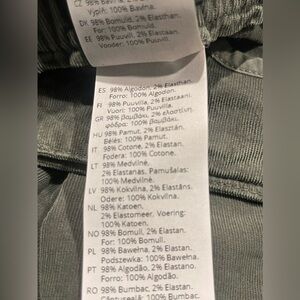 CZ 98% Bavlna, 2% Elastan.
Výplň: 100% Bavlna.
DK 98% Bomuld, 2% Elasthan.
For: 100% Bomuld.
EE 98% Puuvill, 2% Elastaan.
Vooder: 100% Puuvill.
ES 98% Algodón, 2% Elasthan.
Forro: 100% Algodon.
FI 98% Puuvilla, 2% Elastaani.
Vuori: 100% Puuvilla.
GR 98% βαμβάκι, 2% ελαστίνη.
φόδρα: 100% βαμβάκι.
HU 98% Pamut, 2% Elasztán.
Bélés: 100% Pamut.
IT 98% Cotone, 2% Elastan.
Fodera: 100% Cotone.
LT 98% Medvilnė,
2% Elastanas. Pamušalas:
100% Medvilnė.
LV 98% Kokvilna, 2% Elastāns.
Odere: 100% Kokvilna.
NL 98% Katoen,
2% Elastomeer. Voering:
100% Katoen.
NO 98% Bomull, 2% Elastan.
For: 100% Bomull.
PL 98% Bawełna, 2% Elastan.
Podszewka: 100% Bawełna.
PT 98% Algodão, 2% Elastano.
Forro: 100% Algodão.
RO 98% Bumbac, 2% Elastan.
Căptuşeală: 100% Bumbac.